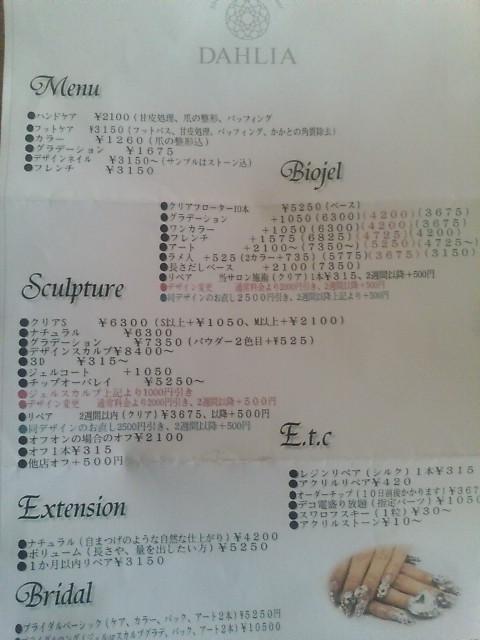 DAHLIA
Menu
●ハンドケア ¥2100(甘皮処理、爪の整形、バッフィング
●フットケア ¥3150(フットバス、甘皮処理、バッフィング、かかとの角質除去)
●カラー ¥1260(爪の整形込)
●グラデーション ¥1675
●デザインネイル ¥3150～(サンプルはストーン込)
●フレンチ ¥3150
Biojel
●クリアフローター10本 ¥5250(ベース)
●グラデーション +1050(6300)(4200)(3675)
●ワンカラー +1050(6300)(4200)(3675)
●フレンチ +1575(6825)(4725)(4200)
●アート +2100～(7350～)(5250)(4725～)
●ラメ入 +525(2カラー+735)(5775)(3675)(3150)
●長さだしベース +2100(7350)
●リペア 当サロン施術(クリア)1本¥315、2週間以降+500円
●デザイン変更 通常料金より2000円引き、2週間以降+500円
●同デザインのお直し2500円引き、2週間以降上記より+500円
Sculpture
●クリアS ¥6300(S以上+¥1050、M以上+¥2100)
●ナチュラル ¥6300
●グラデーション ¥7350(パウダー2色目+¥525)
●デザインスカルプ¥8400～
●3D ¥315～
●ジェルコート +1050
●チップオーバレイ ¥5250～
●ジェルスカルプ上記より1000円引き
●デザイン変更 通常料金より2000円引き、2週間以降+500円
●リペア 2週間以内(クリア)¥3675、以降+500円
●同デザインのお直し2500円引き、2週間以降+500円
●オフオンの場合のオフ¥2100
●オフ1本¥315
●他店オフ+500円
E.t.c
●レジンリペア(シルク)1本¥315
●アクリルリペア¥420
●オーダーチップ(10日前後かかります)¥367
●デコ電盛り放題(指定パーツ)¥1050
●スワロフスキー(1粒)¥30～
●アクリルストーン¥10～
Extension
●ナチュラル(自まつげのような自然な仕上がり)¥4200
●ボリューム(長さや、量を出したい方)¥5250
●1か月以内リペア¥3150
Bridal
●ブライダルベーシック(ケア、カラー、パック、アート2本)¥5250円
アート2本)¥10500